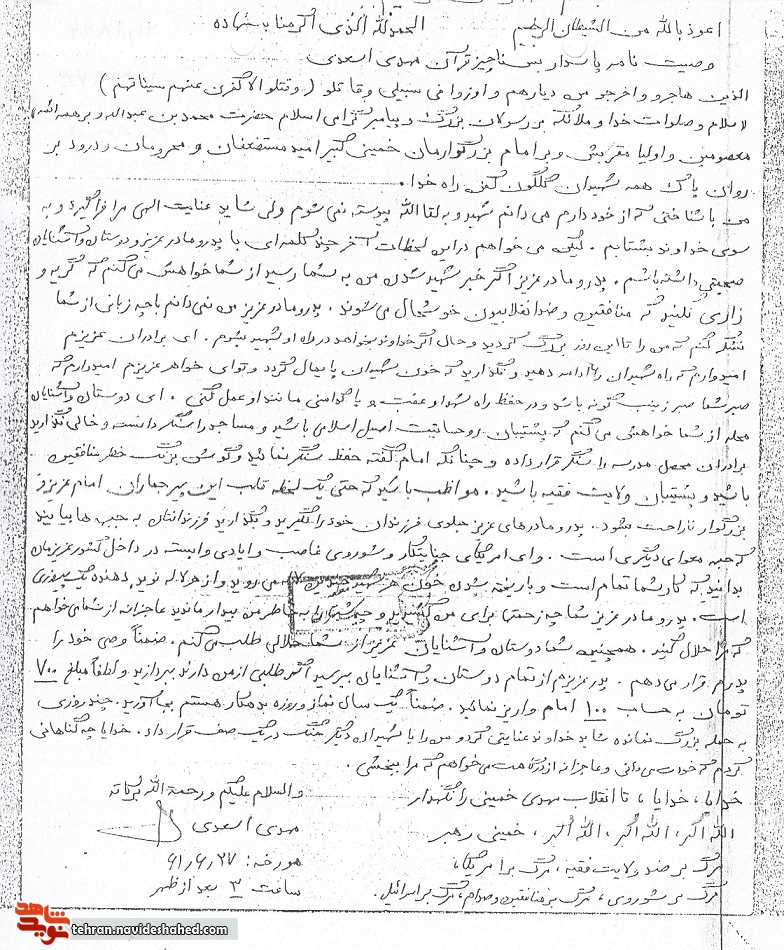 اعوذ بالله من الشیطان الرجیم الحمدلله الذی اکرمنا بشهاده
وصیت نامه پاسدار بس ناچیز قرآن مهدی اسعدی
الذین هاجرو واخرجو من دیارهم و اوذوا فی سبیلی وقاتلو ( وقتلو الاکفرن عنهم سیئاتهم )
با سلام و صلوات خدا و ملائکه بر رسولان بزرگ و پیامبر گرامی اسلام حضرت محمد بن عبدالله و بر همه ائمه
معصومین و اولیا مقربش و بر امام بزرگوارمان خمینی کبیر امید مستضعفان و محرومان و درود بر
روان پاک همه شهیدان گلگون کفن راه خدا .
من با شناختی که از خود دارم می دانم شهید و به لقا الله پیوسته نمی شوم ولی شاید عنایت الهی مرا فراگیرد و به
سوی خداوند بشتابم . لیکن می خواهم در این لحظات آخر چند کلمه ای با پدر و مادر عزیز و دوستان و آشنایان
صحبتی داشته باشم . پدر و مادر عزیز اگر خبر شهید شدن من به شما رسید از شما خواهش می کنم که گریه و
زاری نکنید که منافقین و ضد انقلابیون خوشحال می شوند . پدر و مادر عزیز من نمی دانم با چه زبانی از شما
تشکر کنم که من را تا این روز بزرگ کردید و حال اگر خداوند بخواهد در راه او شهید بشوم . ای برادران عزیزم
امیدوارم که راه شهیدان را ادامه دهید و نگذارید که خون شهیدان پایمال گردد و توای خواهر عزیزم امیدوارم که
صبر شما صبر زینب گونه باشد و در حفظ راه شهدا و عفت و پاکدامنی مانند او عمل کنی . ای دوستان و آشنایان
محله از شما خواهش می کنم که پشتیبان روحانیت اصیل اسلامی باشید و مساجد را سنگر دانسته و خالی نگذارید
برادران محصل مدرسه را سنگر قرار داده و چنانکه امام گفته حفظ سنگر نمائید و گوش بزنگ خطر منافقین
باشید و پشتیبان ولایت فقیه باشید . مواظب باشید که حتی یک لحظه قلب این پیر جماران امام عزیز و
بزرگوار ناراحت نشود . پدر و مادرهای عزیز جلوی فرزندان خود را نگیرید و بگذارید فرزندانتان به جبهه ها بیایند
که جبهه هوای دیگری است . وای امریکای جنایتکار و شوروی غاصب و ایادی وابسته در داخل کشور عزیزمان
بدانید که کار شما تمام است و با ریخته شدن خون هر شهید می روید و از هر لاله نوید دهنده یک پیروزی
است . پدر و مادر عزیز شما چه زحمتها برای من کشیدید و چه شبها را به خاطر من بیدار ماندید عاجزانه از شما می خواهم
که مرا حلال کنید . همچنین شما دوستان و آشنایان عزیز از شما حلالی طلب می کنم . ضمناً وصی خود را
پدرم قرار می دهم . پدر عزیزم از تمام دوستان و آشنایان بپرسید اگر طلبی از من دارند بپردازید و لطفاً مبلغ ۷۰۰
تومان به حساب ۱۰۰ امام واریز نمائید . ضمناً یک سال نماز و روزه بدهکار هستم بجا آورید . چند روزی
به حمله بزرگ نمانده شاید خداوند عنایتی کرد و من را با شهیدان دیگر جنگ در یک صف قرار داد . خدایا چه گناهانی
کردم که خودت می دانی و عاجزانه از درگاهت می خواهم که مرا ببخشی .
خدایا ، خدایا ، تا انقلاب مهدی خمینی را نگهدار والسلام علیکم و رحمة الله برکاته
الله اکبر ، الله اکبر ، الله اکبر ، خمینی رهبر مهدی اسعدی
مرگ بر ضد ولایت فقیه ، مرگ بر امریکا ، مورخه : ۶۱/۶/۲۷
مرگ بر شوروی ، مرگ بر منافقین و صدام ، مرگ بر اسرائیل . ساعت ۳ بعد از ظهر
نوید شاهد tehran.navideshahed.com